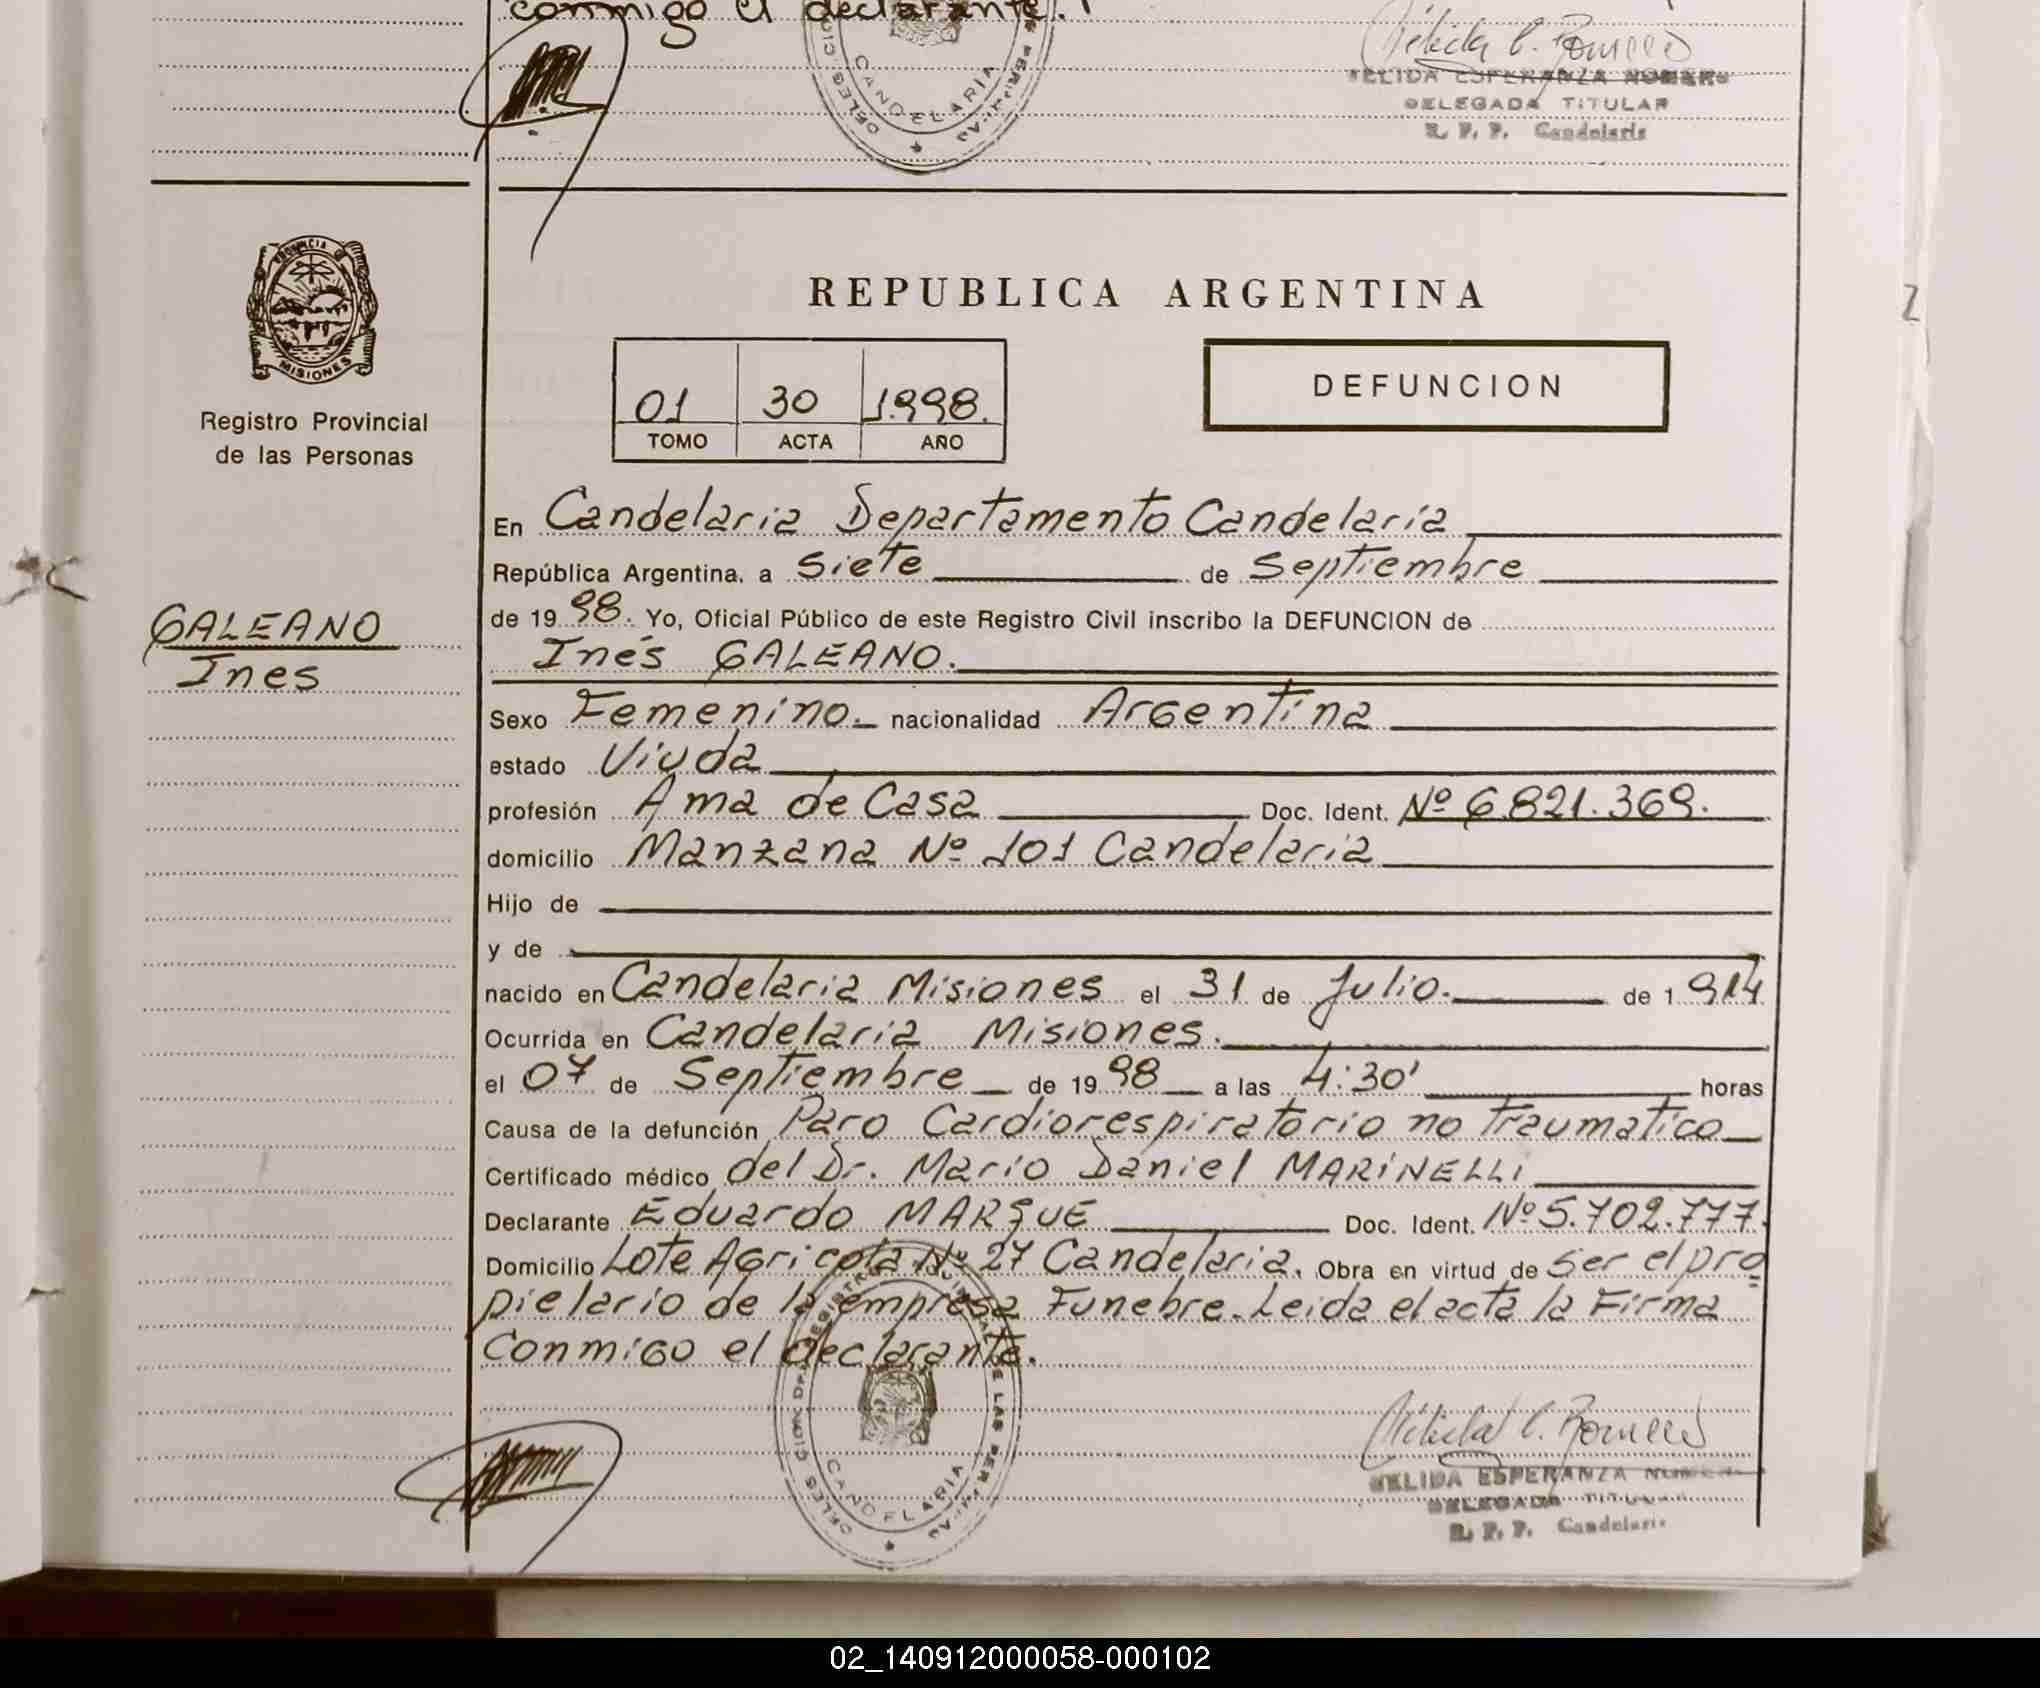 conmigo el declarante.
CANDELARIA
NELIDA ESPERANZA ROMERO
DELEGADA TITULAR
R. P. P. Candelaria
PROVINCIA DE
MISIONES
Registro Provincial
de las Personas
REPUBLICA ARGENTINA
01 30 1.998.
TOMO ACTA AÑO
DEFUNCION
GALEANO
Ines
En Candelaria Departamento Candelaria
República Argentina, a siete de Septiembre
de 19 98. Yo, Oficial Público de este Registro Civil inscribo la DEFUNCION de
Inés GALEANO.
Sexo Femenino. nacionalidad Argentina
estado Viuda
profesión Ama de Casa Doc. Ident. Nº 6.821.369.
domicilio Manzana Nº 101 Candelaria
Hijo de
y de
nacido en Candelaria Misiones el 31 de Julio. de 1 914
Ocurrida en Candelaria Misiones.
el 07 de Septiembre de 19 98 a las 4:30' horas
Causa de la defunción Paro Cardiorespiratorio no traumatico
Certificado médico del Dr. Mario Daniel MARINELLI
Declarante Eduardo MARQUE Doc. Ident. Nº 5.702.777.
Domicilio Lote Agricola Nº 27 Candelaria. Obra en virtud de ser el pro=
pietario de la empresa Funebre. Leida el acta la Firma
Conmigo el declarante.
CANDELARIA
NELIDA ESPERANZA ROMERO
DELEGADA TITULAR
R. P. P. Candelaria
02_140912000058-000102